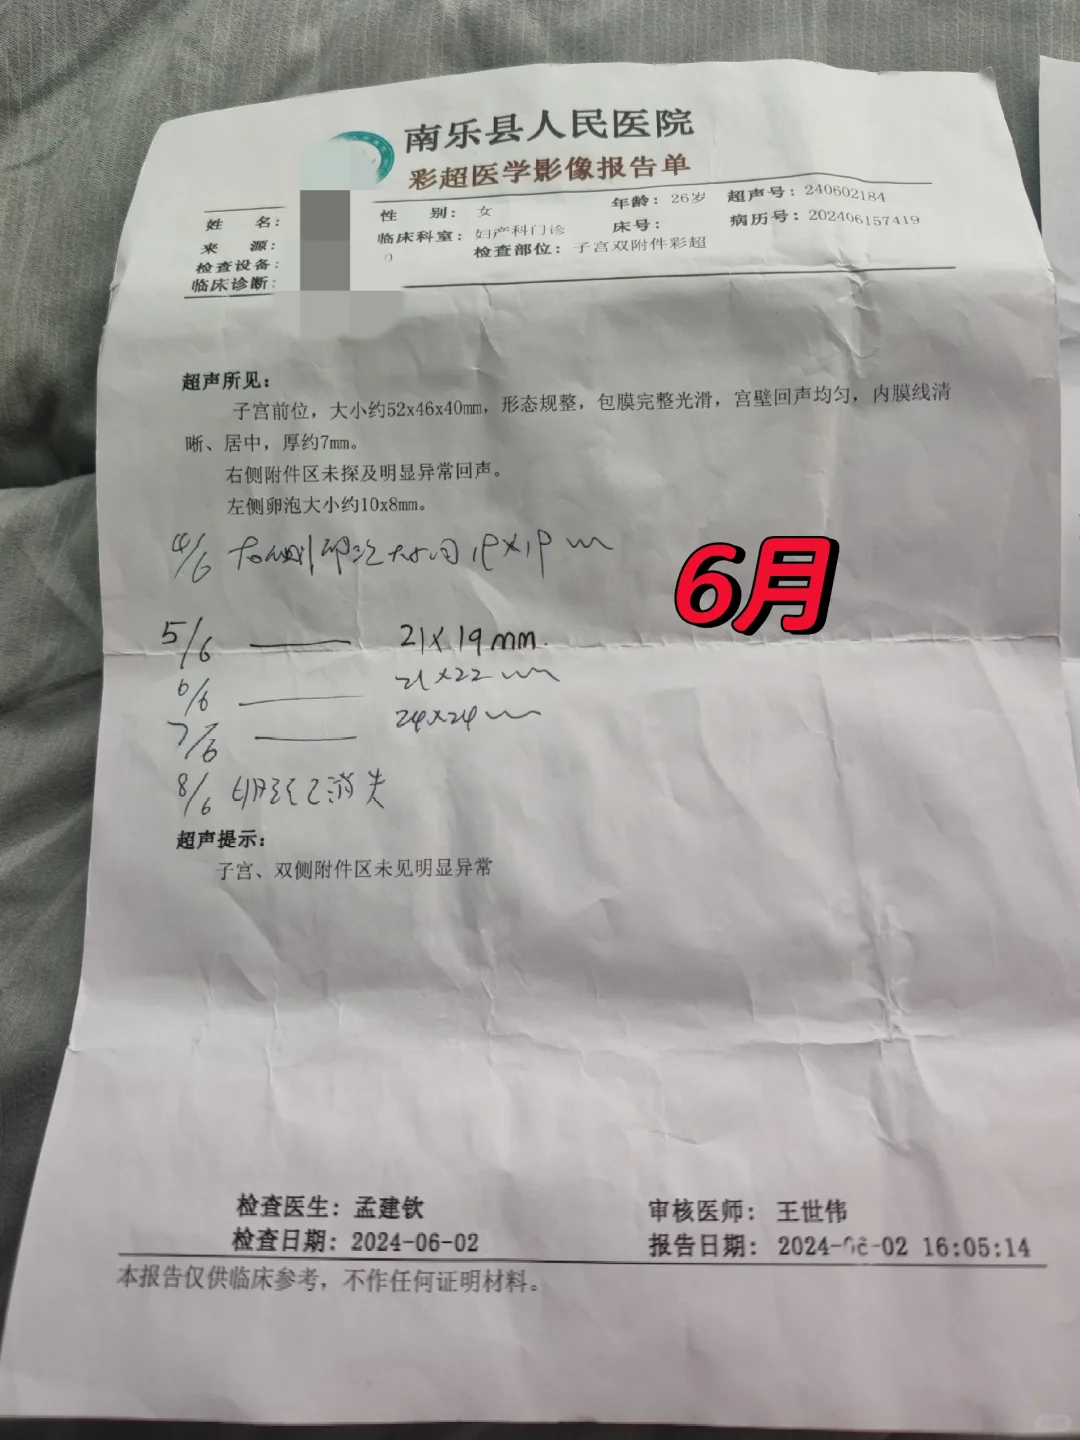 南乐县人民医院
彩超医学影像报告单
姓 名: 性 别: 女 年龄: 26岁 超声号: 240602184
来 源: 临床科室: 妇产科门诊 床号: 病历号: 202406157419
检查设备: 检查部位: 子宫双附件彩超
临床诊断:
超声所见:
子宫前位，大小约52x46x40mm，形态规整，包膜完整光滑，宫壁回声均匀，内膜线清
晰、居中，厚约7mm。
右侧附件区未探及明显异常回声。
左侧卵泡大小约10x8mm。
4/6 右侧卵泡大小约19×19mm
6月
5/6 —— 21×19mm.
6/6 —— 21×22mm
7/6 —— 24×24mm
8/6 卵泡已消失
超声提示:
子宫、双侧附件区未见明显异常
检查医生: 孟建钦 审核医师: 王世伟
检查日期: 2024-06-02 报告日期: 2024-06-02 16:05:14
本报告仅供临床参考，不作任何证明材料。